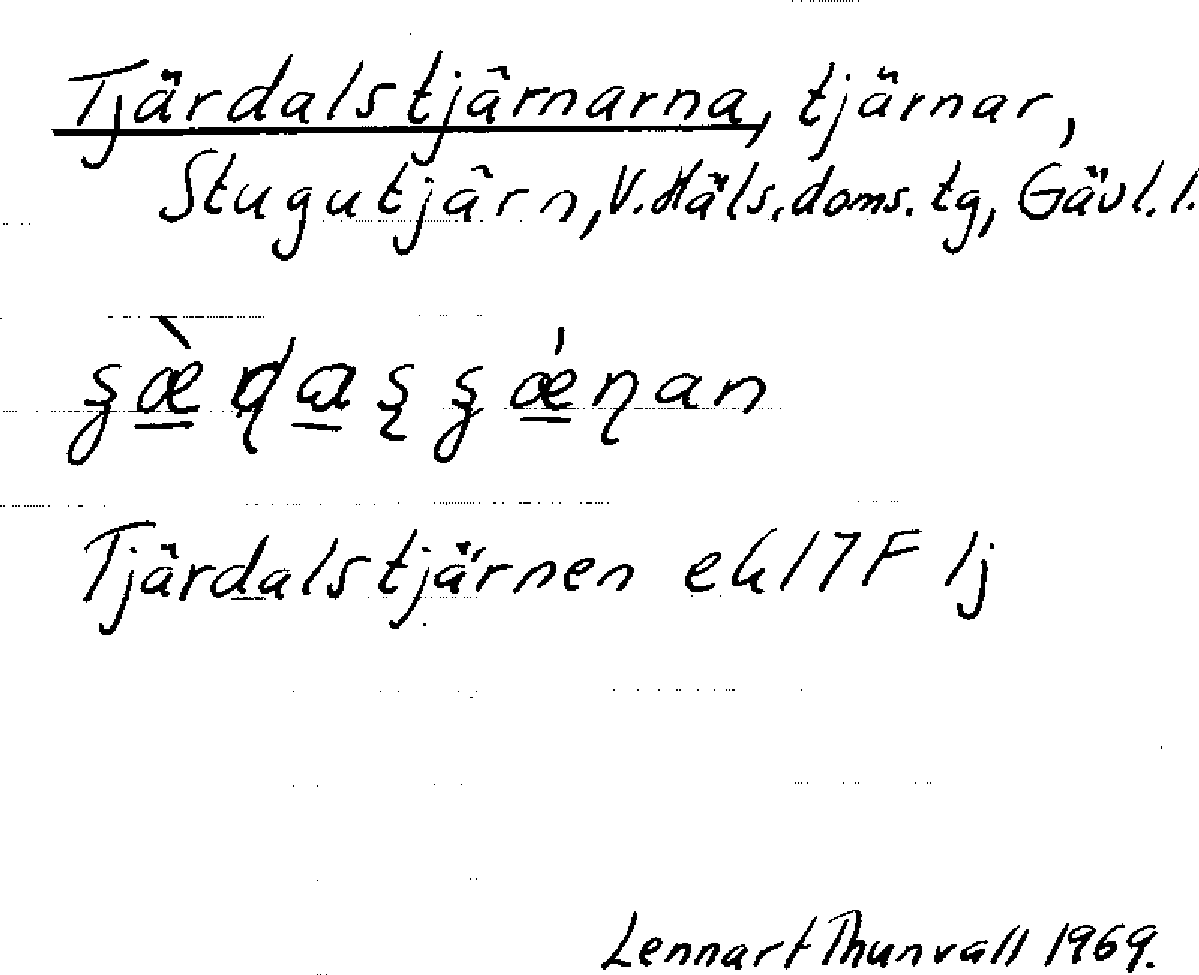 Tjärdalstjärnarna, tjärnar,
Stugutjärn, V. Häls. doms. tg, Gävl. l.
Tjärdalstjärnen ek 17F 1j
Lennart Thunvall 1969.